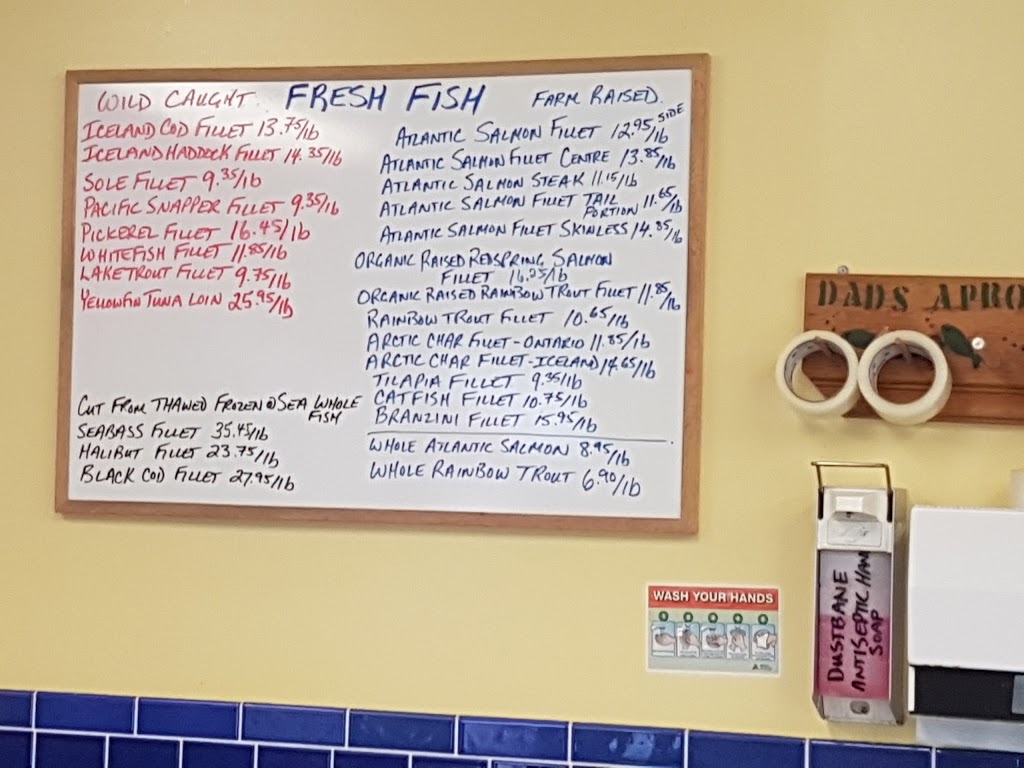 WILD CAUGHT
FRESH FISH
FARM RAISED
ICELAND COD FILLET 13.75/lb
ICELAND HADDOCK FILLET 14.35/lb
SOLE FILLET 9.35/lb
PACIFIC SNAPPER FILLET 9.35/lb
PICKEREL FILLET 16.45/lb
WHITEFISH FILLET 11.85/lb
LAKE TROUT FILLET 9.75/lb
YELLOWFIN TUNA LOIN 25.95/lb
CUT FROM THAWED FROZEN @ SEA WHOLE
FISH
SEABASS FILLET 35.45/lb
HALIBUT FILLET 23.75/lb
BLACK COD FILLET 27.95/lb
ATLANTIC SALMON FILLET 12.95/lb SIDE
ATLANTIC SALMON FILLET CENTRE 13.85/lb
ATLANTIC SALMON STEAK 11.15/lb
ATLANTIC SALMON FILLET TAIL
PORTION 11.65/lb
ATLANTIC SALMON FILLET SKINLESS 14.85/lb
ORGANIC RAISED REDSPRING SALMON
FILLET 16.25/lb
ORGANIC RAISED RAINBOW TROUT FILLET 11.85/lb
RAINBOW TROUT FILLET 10.65/lb
ARCTIC CHAR FILLET - ONTARIO 11.85/lb
ARCTIC CHAR FILLET - ICELAND 14.65/lb
TILAPIA FILLET 9.35/lb
CATFISH FILLET 10.75/lb
BRANZINI FILLET 15.95/lb
WHOLE ATLANTIC SALMON 8.95/lb
WHOLE RAINBOW TROUT 6.90/lb
DADS APRO
WASH YOUR HANDS
DUSTBANE
ANTISEPTIC HAN
SOAP